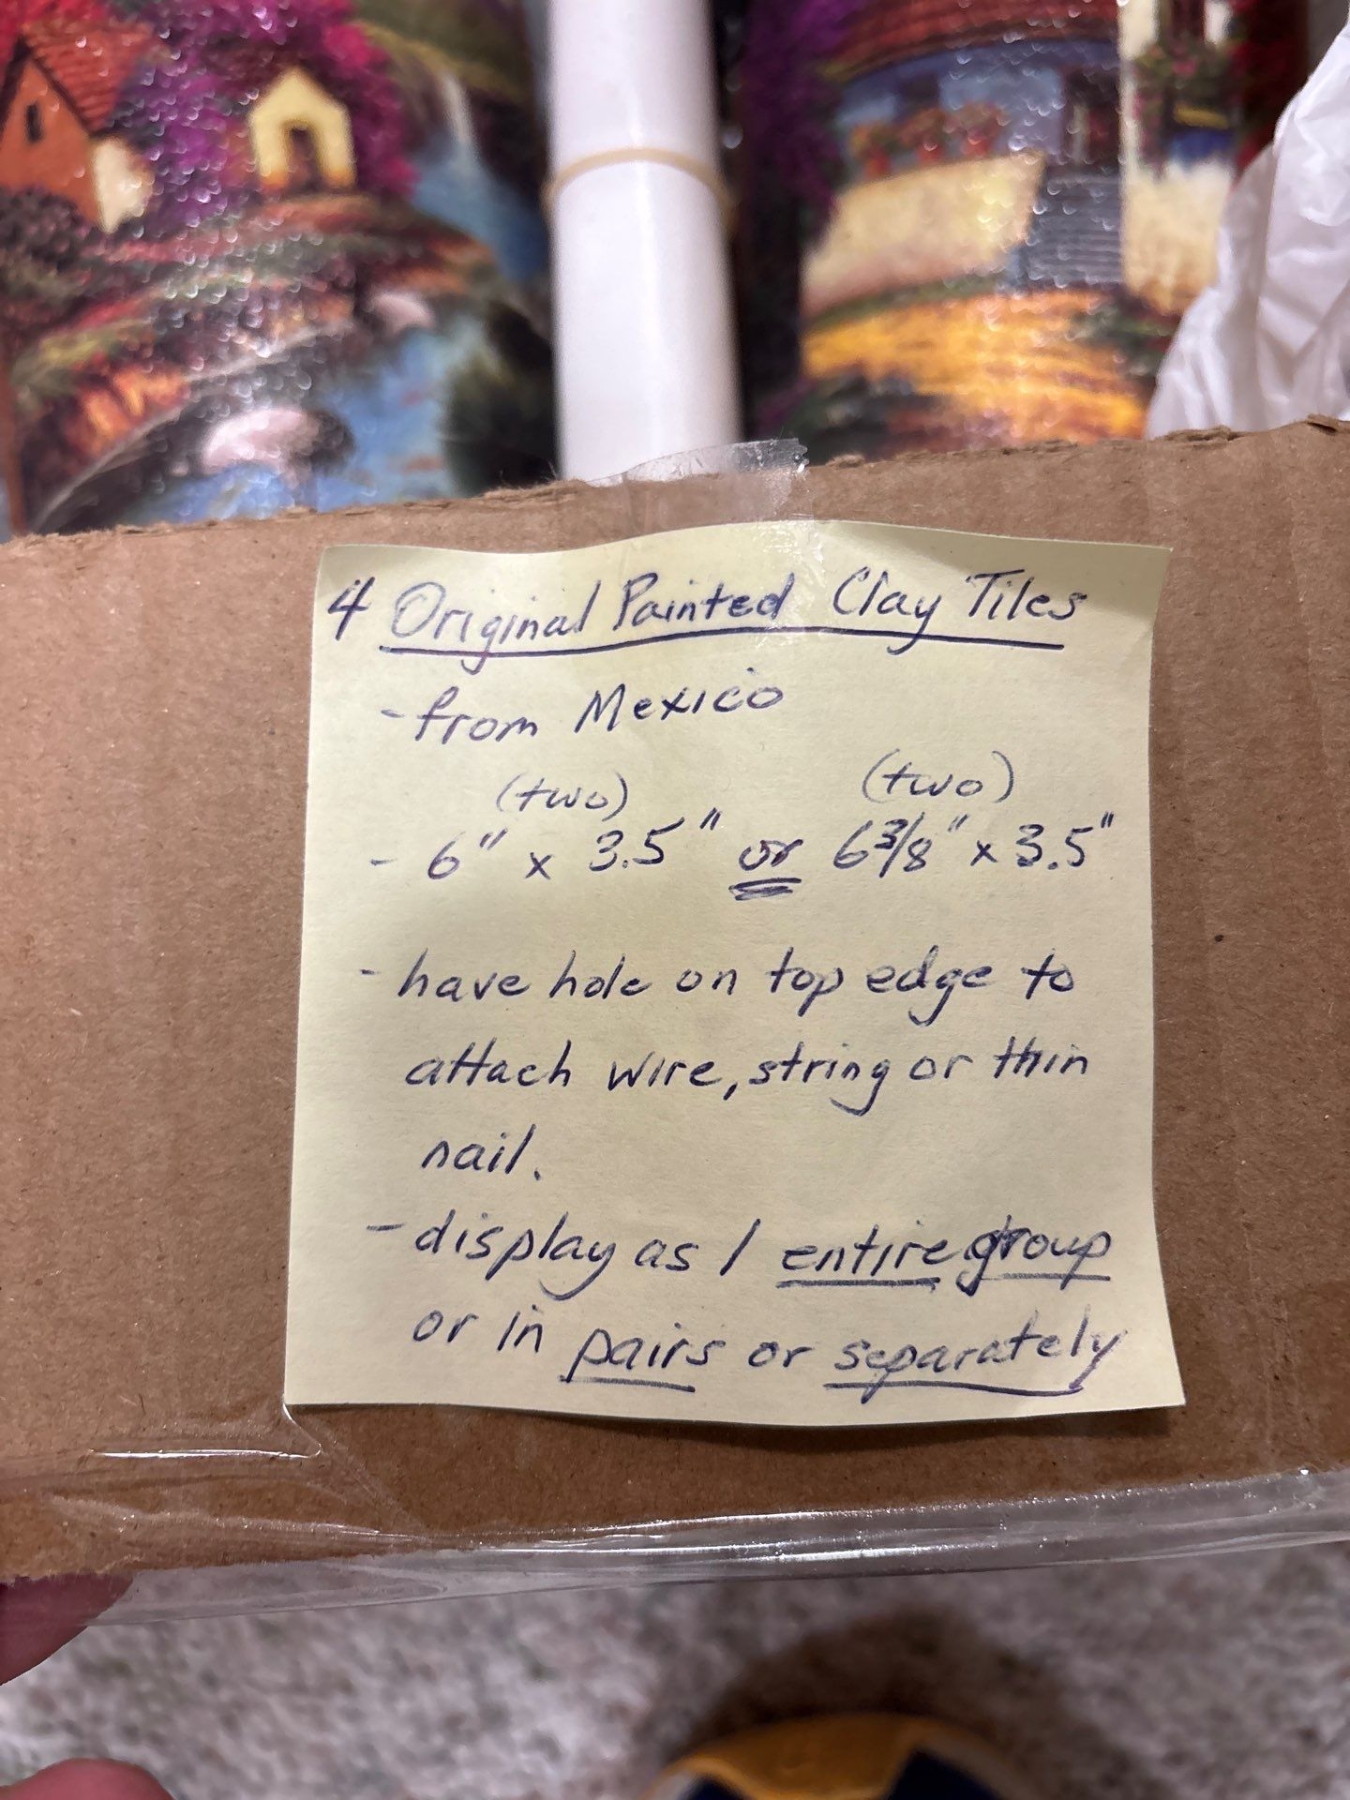 4 Original Painted Clay Tiles
- from Mexico
(two) (two)
- 6" x 3.5" or 6 3/8" x 3.5"
- have hole on top edge to
attach wire, string or thin
nail.
- display as 1 entire group
or in pairs or separately